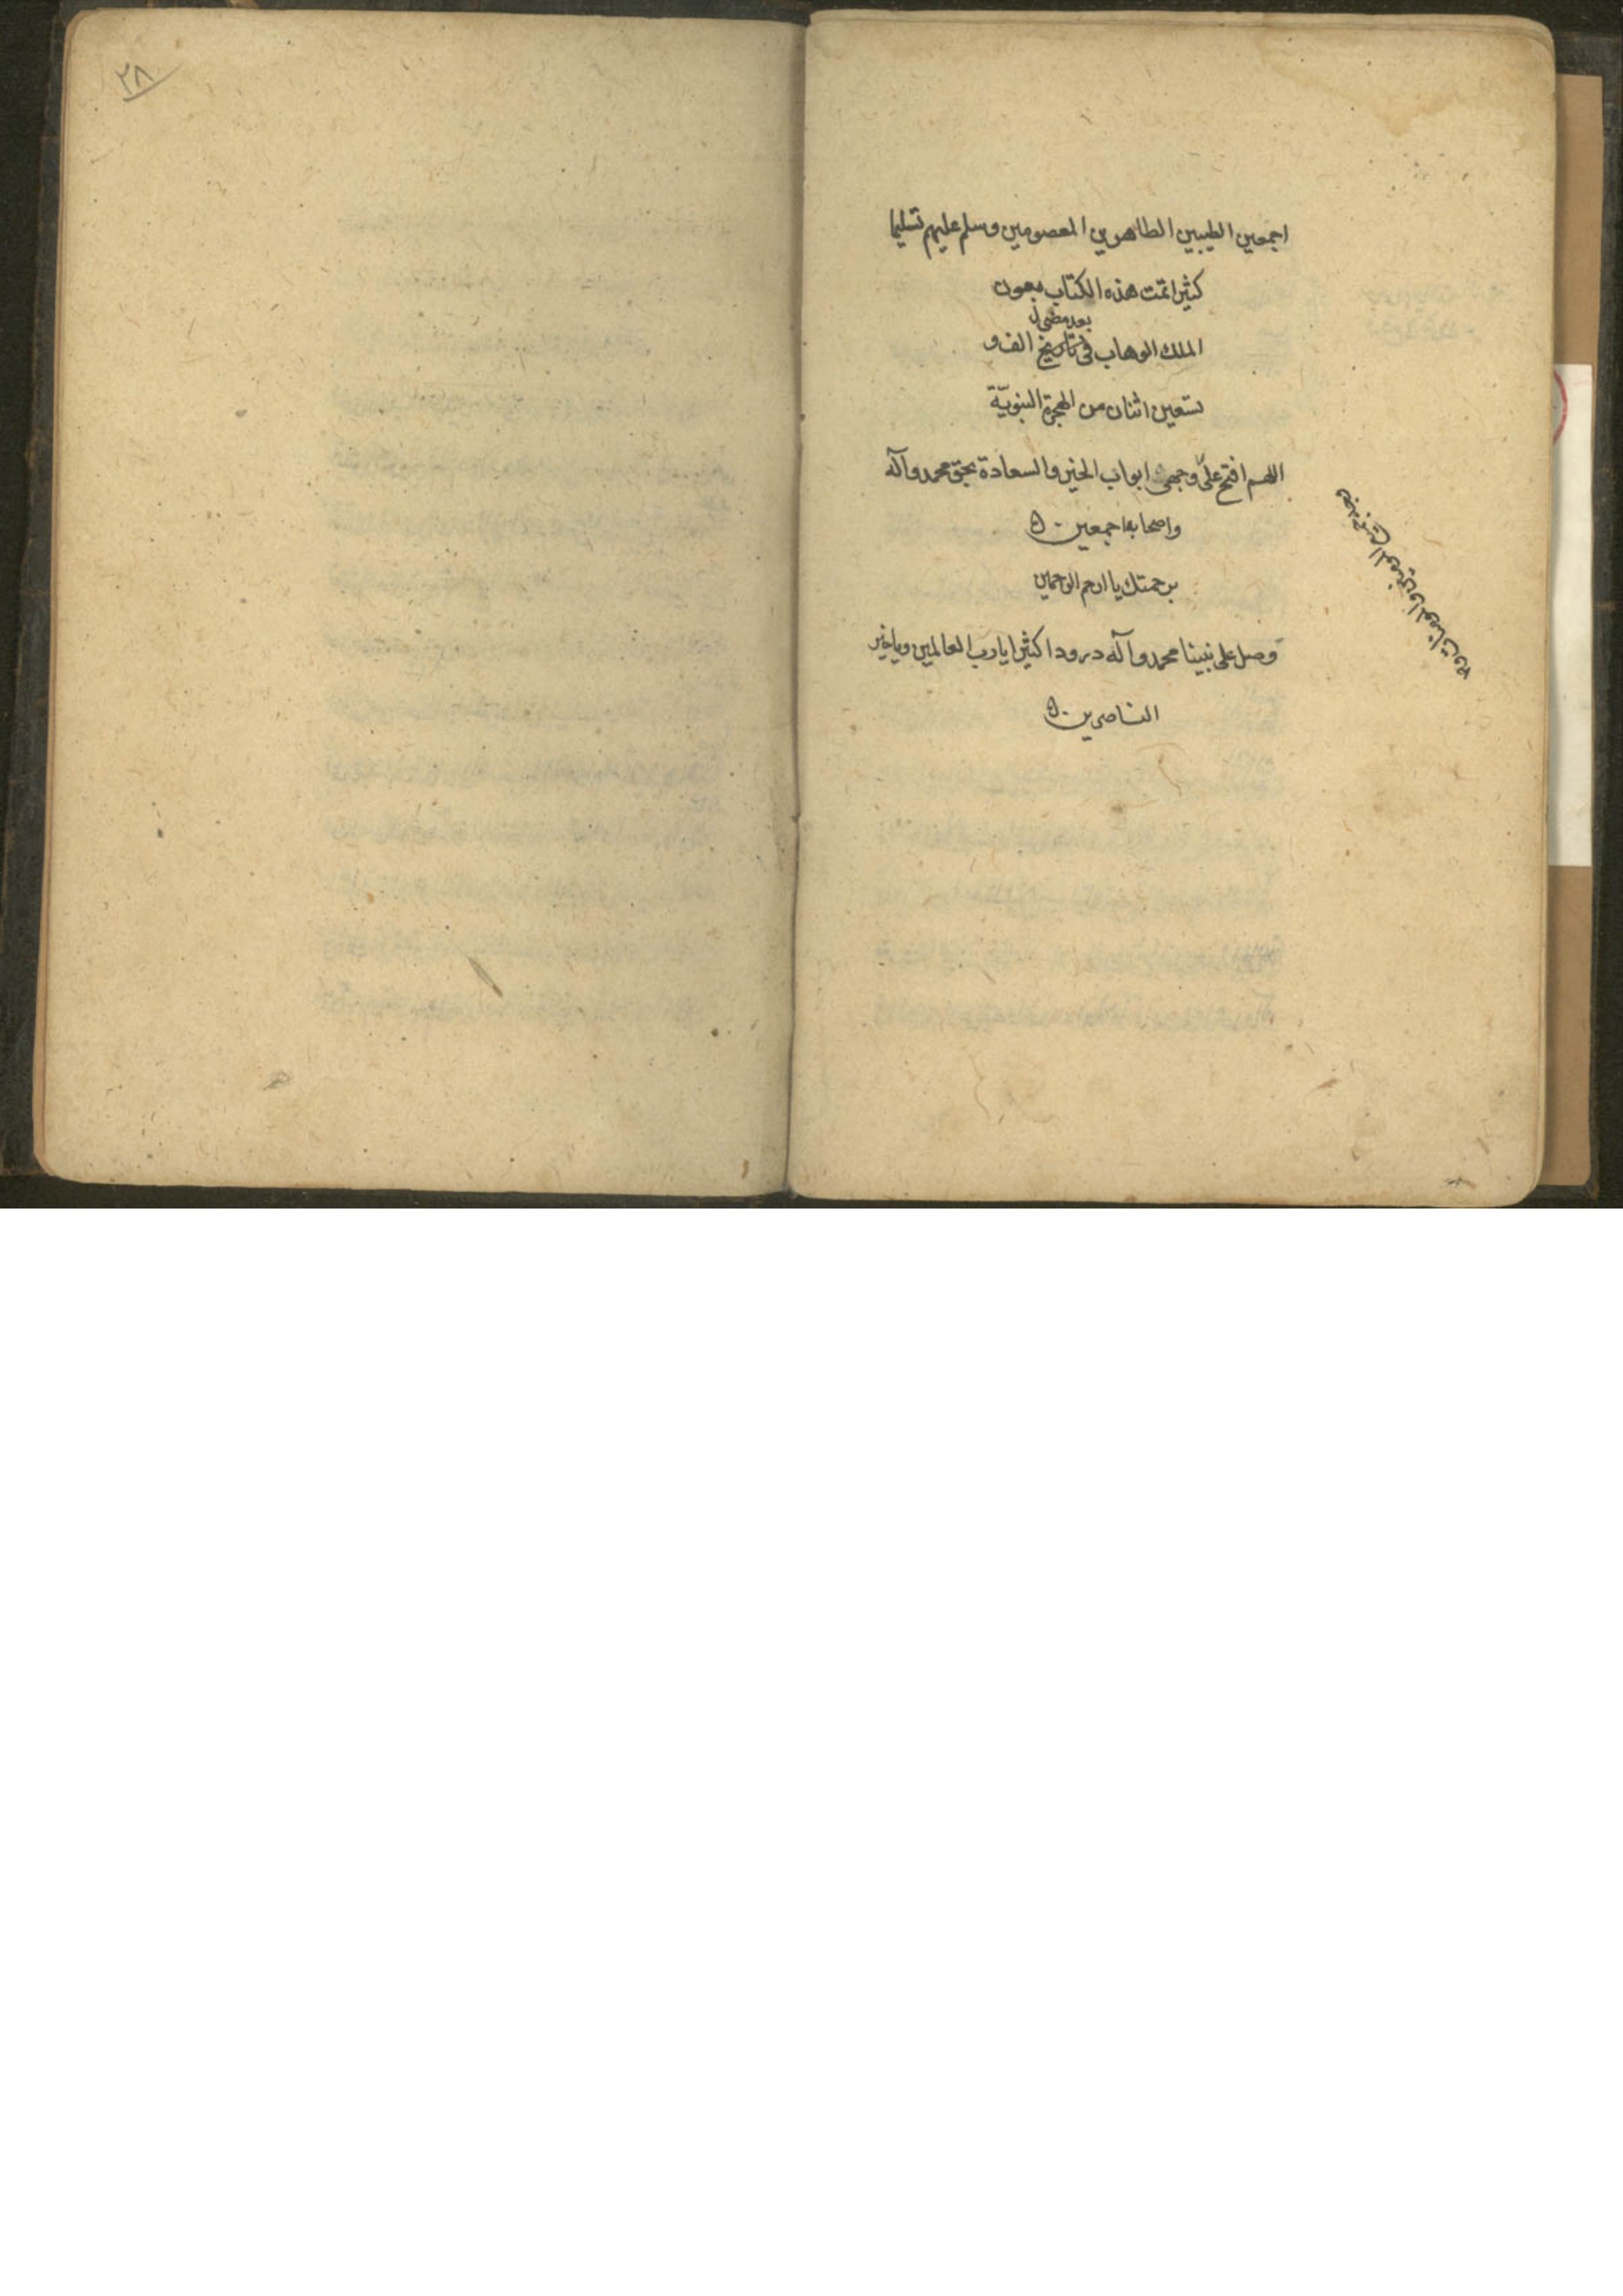 اجمعين الطيبين الطاهرين المعصومين وسلم عليهم تسليما
كثيرا تمت هذه الكتاب بعون
بعد مضى
الملك الوهاب فى تاريخ الف و
تسعين اثنان من الهجرة النبويّة
اللهم افتح علىّ وجهى ابواب الخير والسعادة بحق محمد وآله
واصحابه اجمعين
برحمتك يا ارحم الرحمين
وصل على نبينا محمد وآله درودا كثيرا يا رب العالمين ويا خير
الناصرين
جميع المومنين والمومنات
٢٨